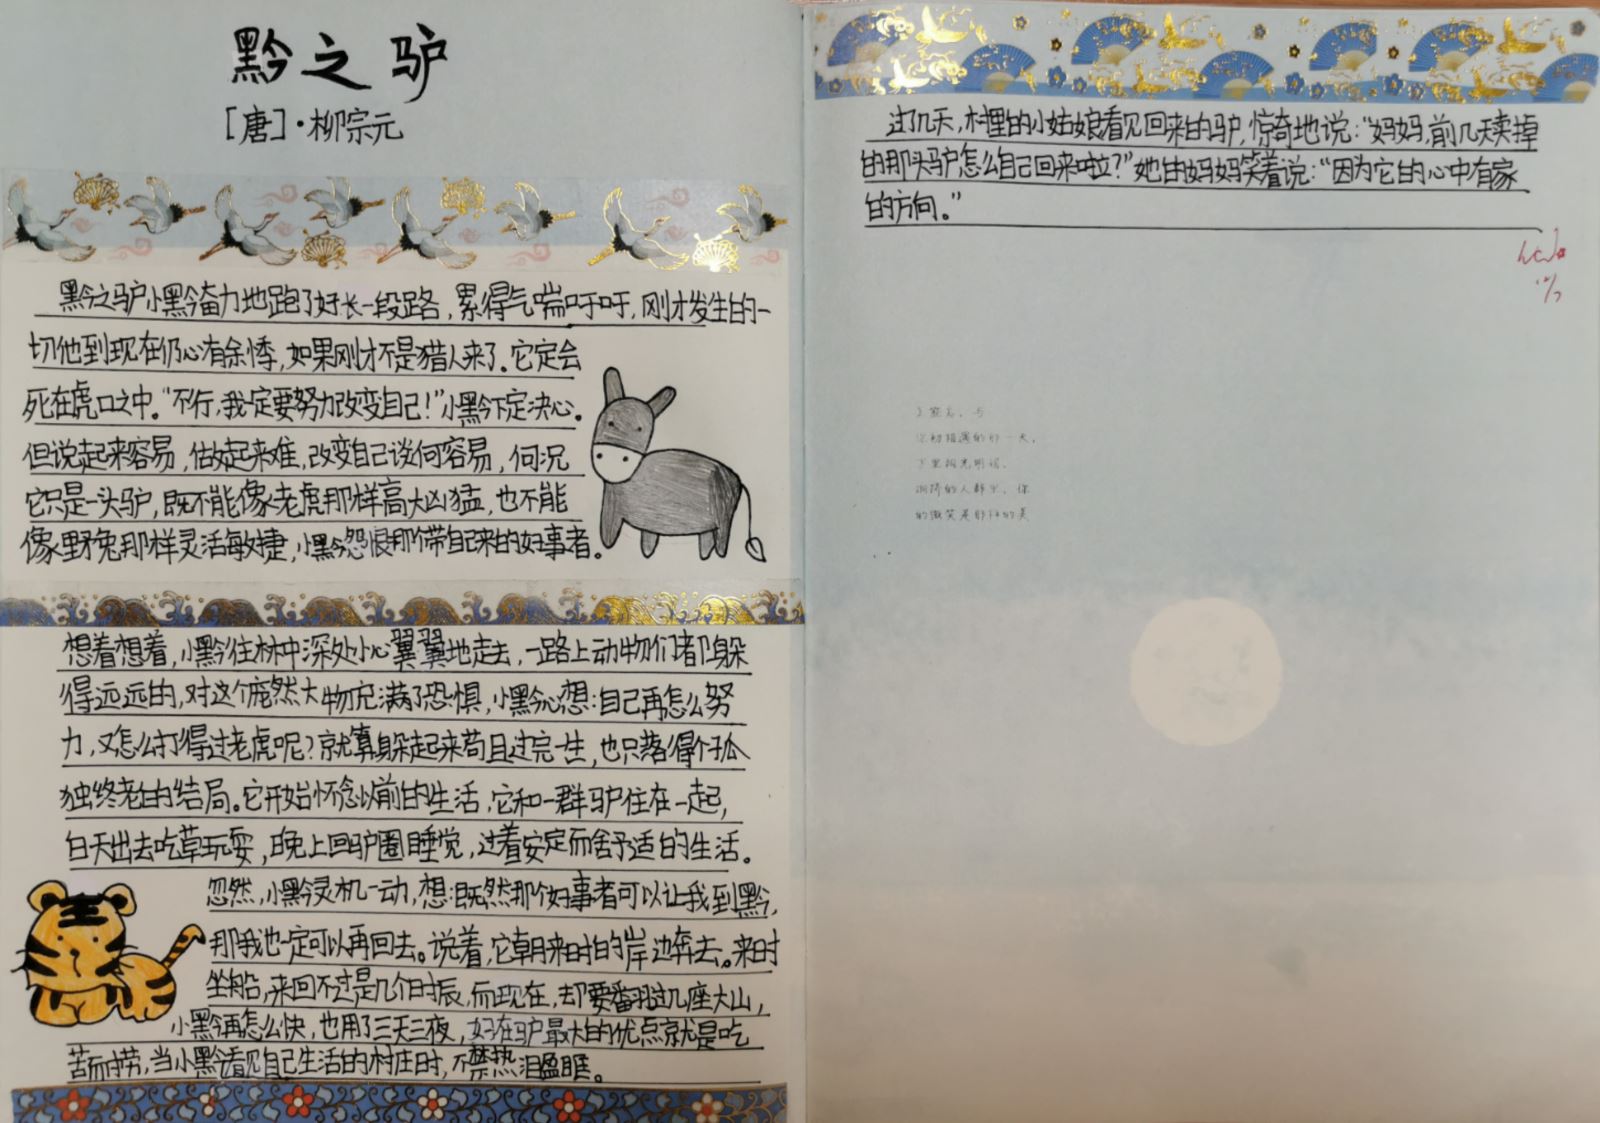 黔之驴
[唐]·柳宗元
黔之驴小黔奋力地跑了好长一段路，累得气喘吁吁，刚才发生的一
切他到现在仍心有余悸，如果刚才不是猎人来了。它定会
死在虎口之中。“不行，我一定要努力改变自己！”小黔下定决心。
但说起来容易，做起来难，改变自己谈何容易，何况
它只是一头驴，既不能像老虎那样高大凶猛，也不能
像野兔那样灵活敏捷，小黔怨恨那个带自己来的好事者。
想着想着，小黔往林中深处小心翼翼地走去，一路上动物们都躲
得远远的，对这个庞然大物充满了恐惧，小黔心想：自己再怎么努
力，又怎么打得过老虎呢？就算躲起来苟且过完一生，也只落得个孤
独终老的结局。它开始怀念以前的生活，它和一群驴住在一起，
白天出去吃草玩耍，晚上回驴圈睡觉，过着安定而舍予适的生活。
忽然，小黔灵机一动，想：既然那个好事者可以让我到黔，
那我也一定可以再回去。说着，它朝来时的岸边奔去。来时
坐船，来回不过是几个时辰，而现在，却要翻过几座大山，
小黔再怎么快，也用了三天三夜，好在驴最大的优点就是吃
苦而才劳，当小黔看见自己生活的村庄时，不禁热泪盈眶。
过了几天，村里的小姑娘看见回来的驴，惊奇地说：“妈妈，前几天卖掉
的那头驴怎么自己回来啦？”她的妈妈笑着说：“因为它的心中有家
的方向。”
的那一天，
的人群里，你
的微笑是那样的美